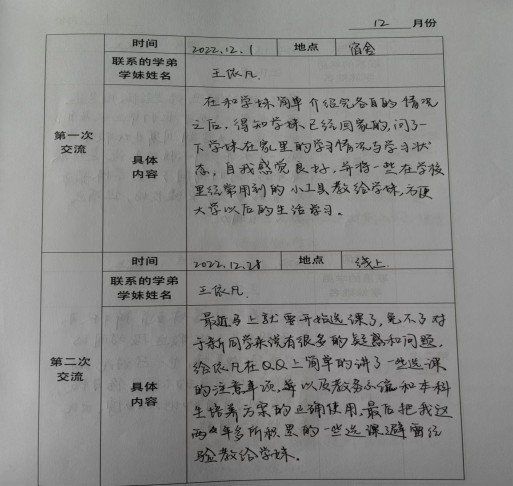 12 月份
时间 2022.12.1 地点 宿舍
联系的学弟
学妹姓名
王依凡.
第一次
交流
具体
内容
在和学妹简单介绍完各自的情况
之后,得知学妹已经回家的,问了一
下学妹在家里的学习情况与学习状
态,自我感觉良好,并将一些在学校
里经常用到的小工具教给学妹,方便
大学以后的生活学习。
时间 2022.12.28 地点 线上
联系的学弟
学妹姓名
王依凡.
第二次
交流
具体
内容
最近马上就要开始选课了,免不了对
于新同学来说有很多的疑惑和问题,
给依凡在QQ上简单的讲了一些选课
的注意事项,等以及教务系统和本科
生培养方案的正确使用,最后把我这
两年多所积累的一些选课避雷经
验教给学妹.